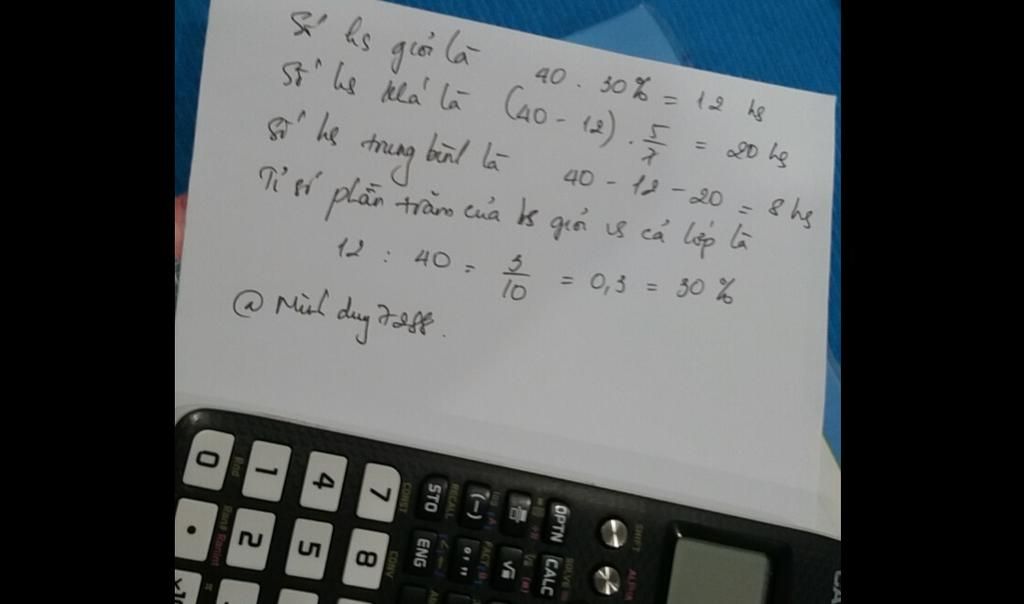 Số hs giỏi là 40 . 30% = 12 hs
Số hs khá là (40 - 12) . 5/7 = 20 hs
Số hs trung bình là 40 - 12 - 20 = 8 hs
Tỉ số phần trăm của hs giỏi vs cả lớp là
12 : 40 = 3/10 = 0,3 = 30 %
@ Minh duy 7288.
SHIFT
ALPHA
OPTN
CALC
SOLVE
(-)
STO
RECALL
ENG
CONST
CONV
7
8
4
5
1
2
0
Rnd
Ran#
.